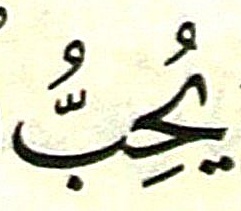 يُحِبُّ